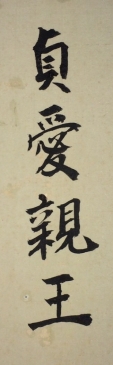 貞愛親王